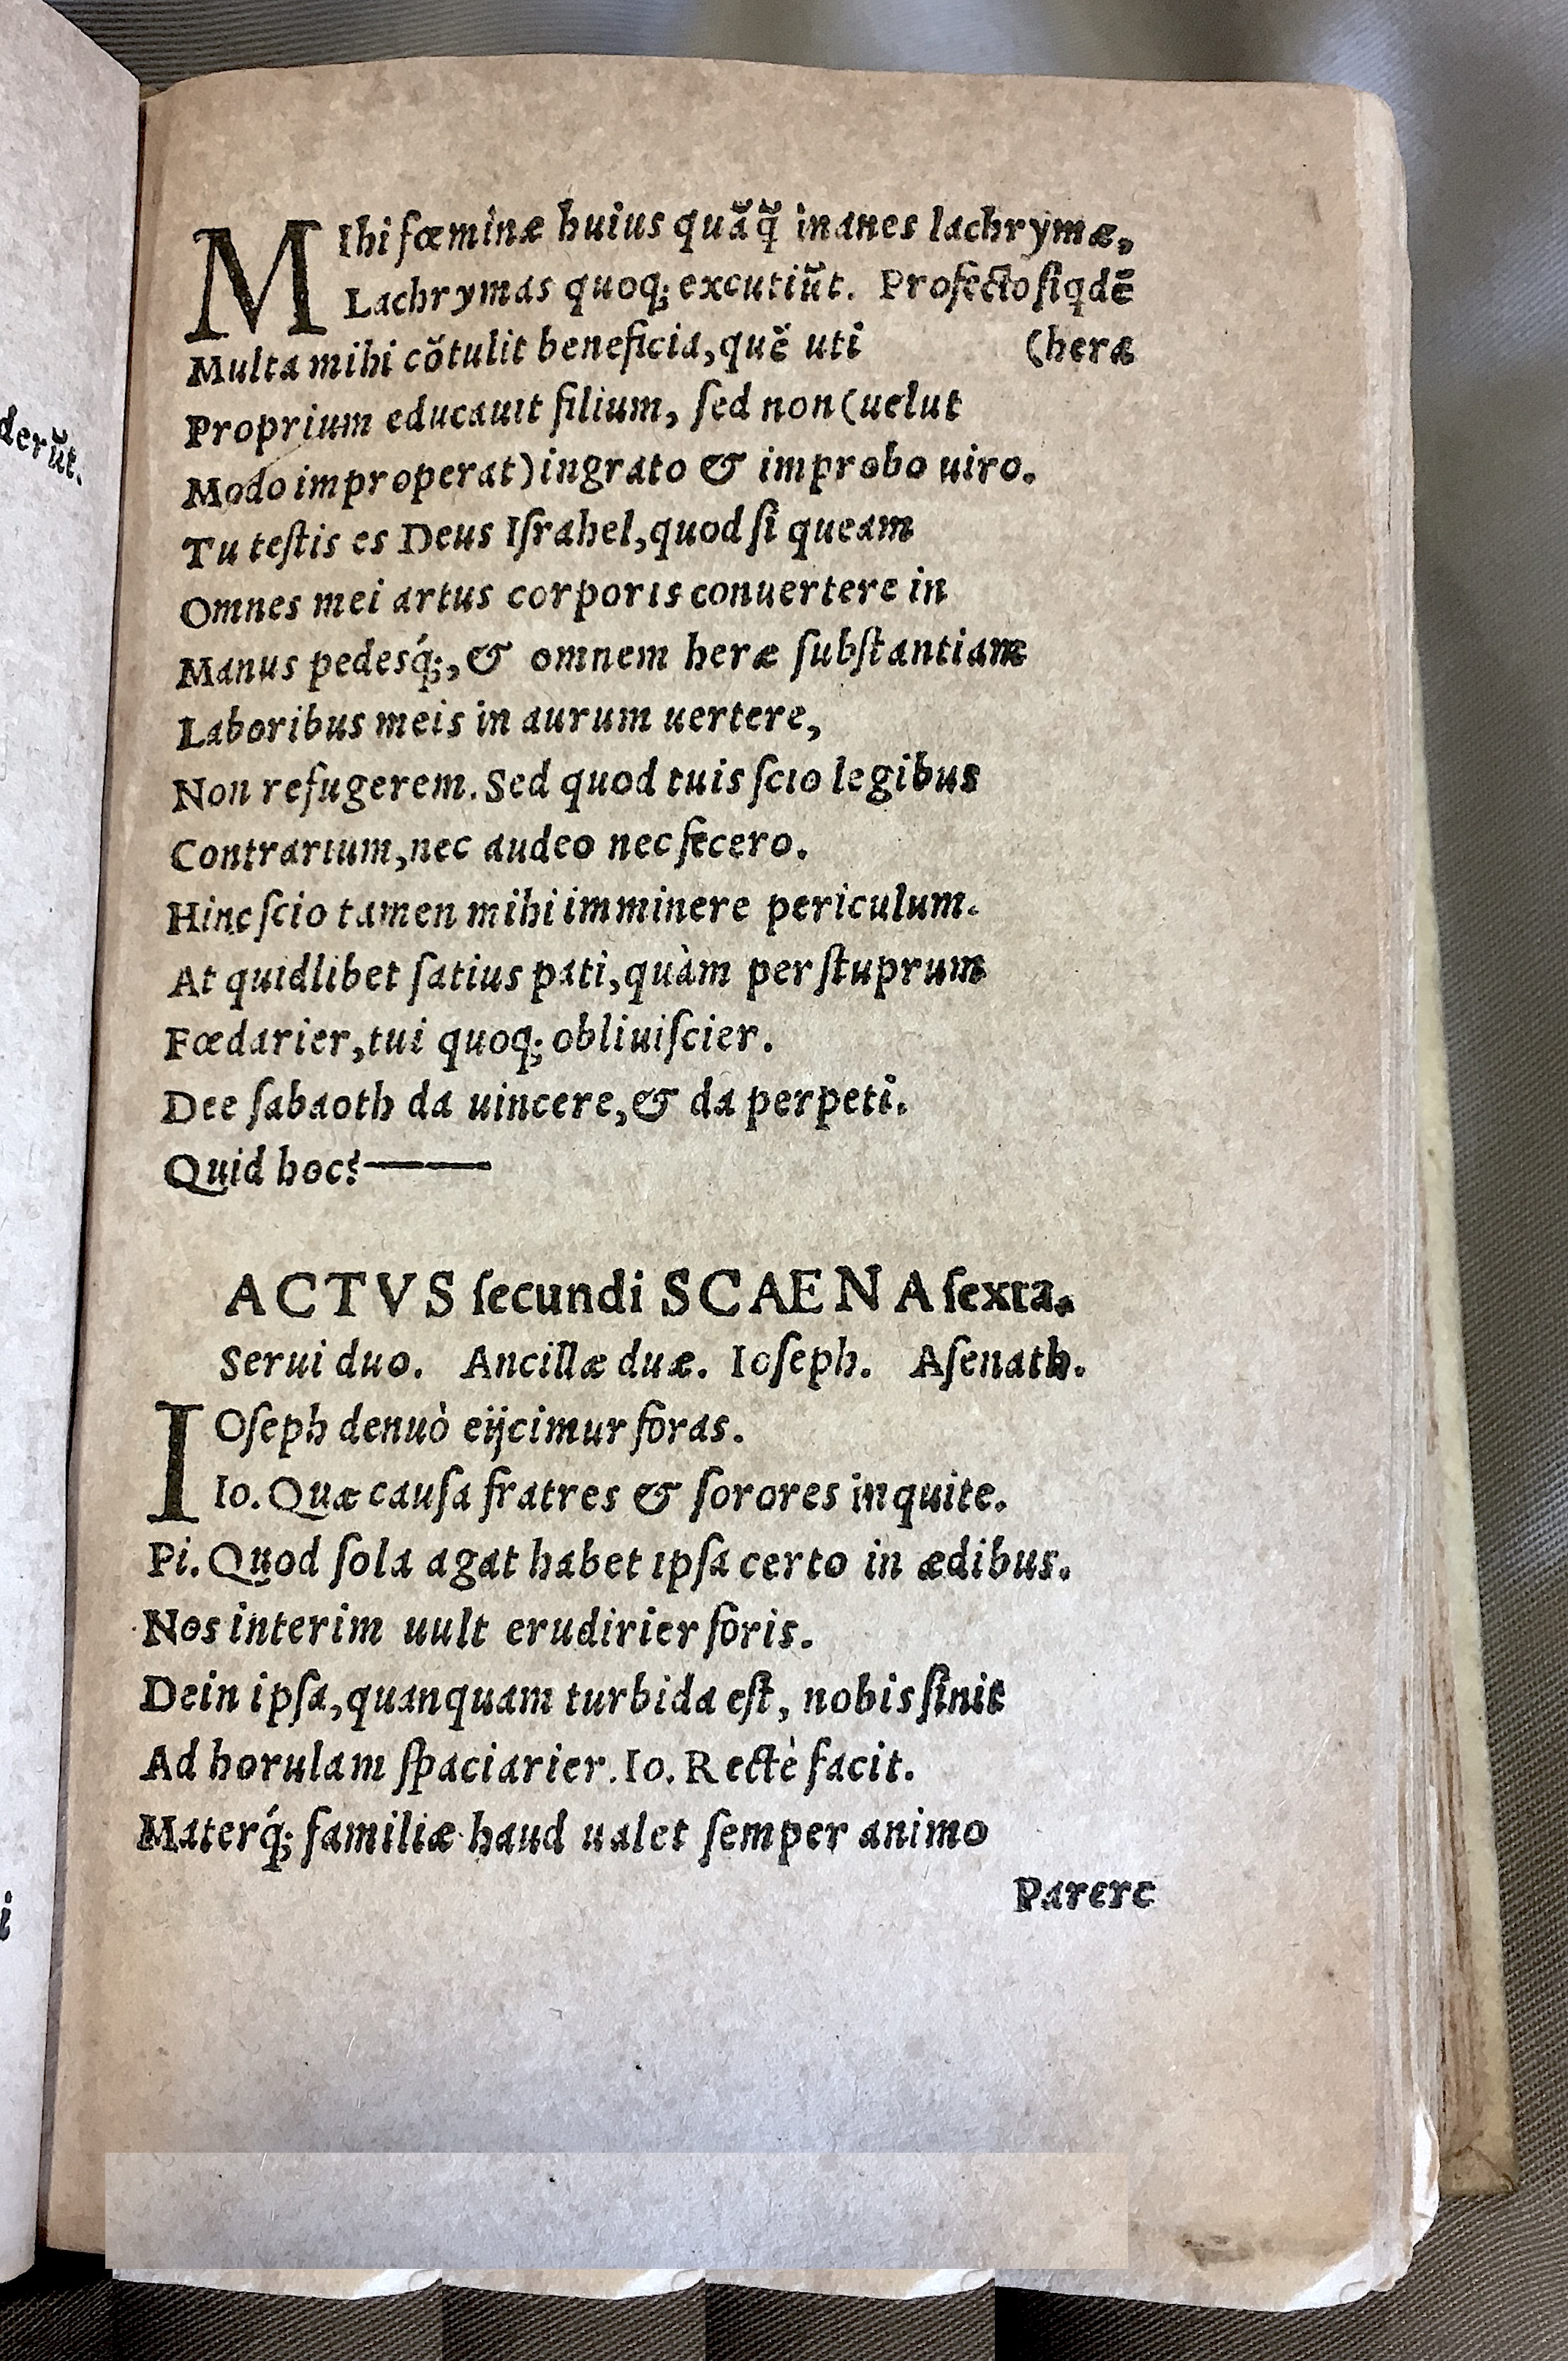 MIhi fœminæ huius quãq̃ inanes lachrymæ,
Lachrymas quoq; excutiũt. Profecto siqdẽ
Multa mihi cõtulit beneficia, quẽ uti (heræ
Proprium educauit filium, sed non (uelut
Modo improperat) ingrato & improbo uiro.
Tu testis es Deus Israhel, quod si queam
Omnes mei artus corporis conuertere in
Manus pedesq́;, & omnem heræ substantiam
Laboribus meis in aurum uertere,
Non refugerem. Sed quod tuis scio legibus
Contrarium, nec audeo nec fecero.
Hinc scio tamen mihi imminere periculum.
At quidlibet satius pati, quàm per stuprum
Fœdarier, tui quoq; obliuiscier.
Dee sabaoth da uincere, & da perpeti.
Quid hoc? ———
ACTVS secundi SCAENA sexta.
Serui duo. Ancillæ duæ. Ioseph. Asenath.
IOseph denuò eijcimur foras.
Io. Quæ causa fratres & sorores inquite.
Pi. Quod sola agat habet ipsa certo in ædibus.
Nos interim uult erudirier foris.
Dein ipsa, quanquam turbida est, nobis sinit
Ad horulam spaciarier. Io. Rectè facit.
Materq́; familiæ haud ualet semper animo
Parere
derũt.
i